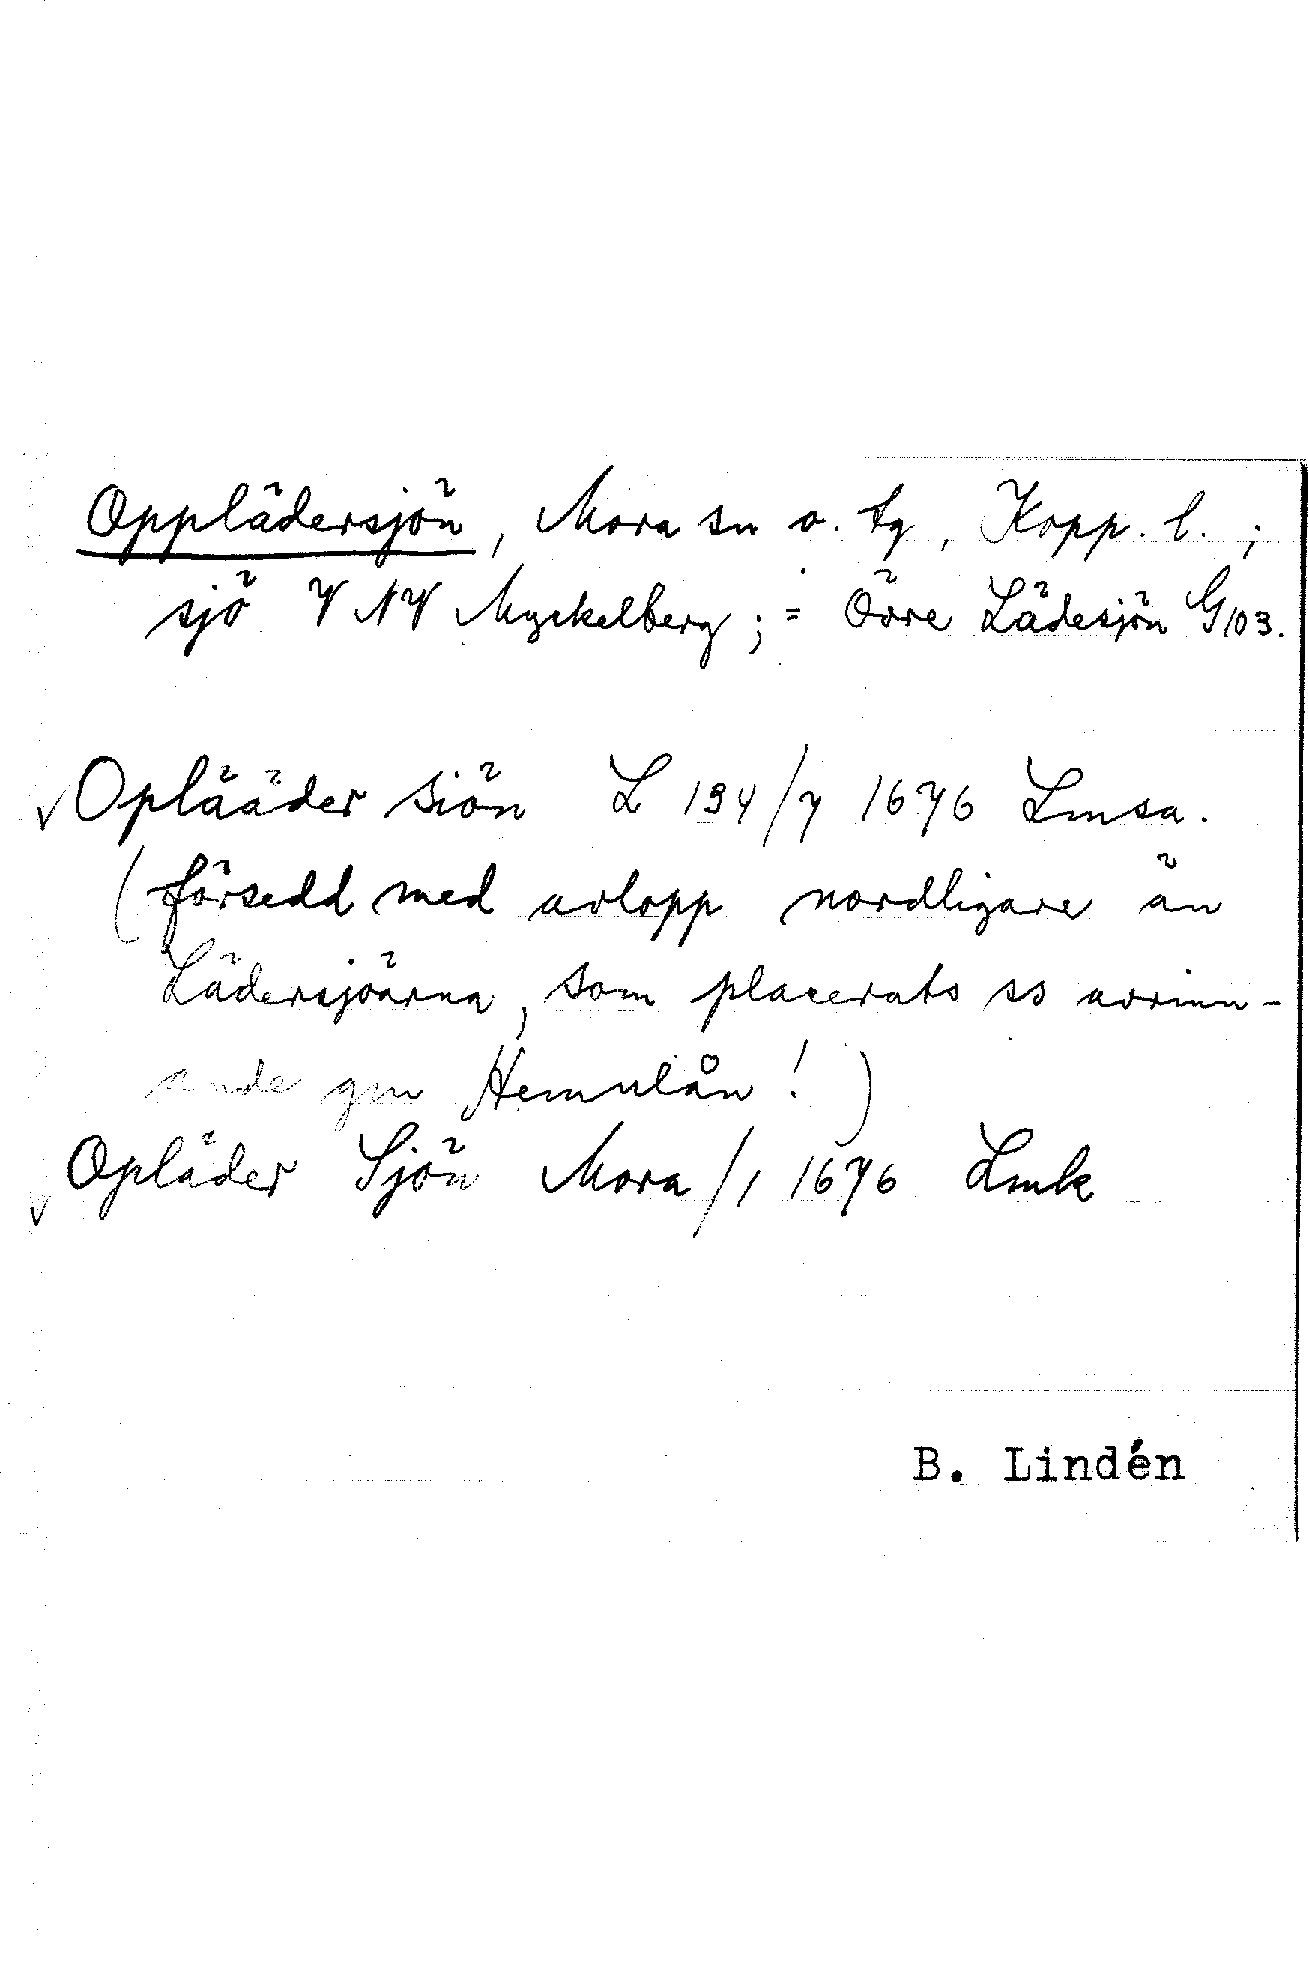 Opplädersjön, Mora sn o. tg, Kopp. l.;
sjö VNV Myckelberg; = Övre Lädesjön G103.
√ Oplääder siön L 194/7 1676 Lmsa.
(försedd med avlopp nordligare än
Lädersjöarna, som placerats ss avrinn-
ande gm Hemulån!)
√ Opläder Sjön Mora/1 1676 Lmk
B. Lindén